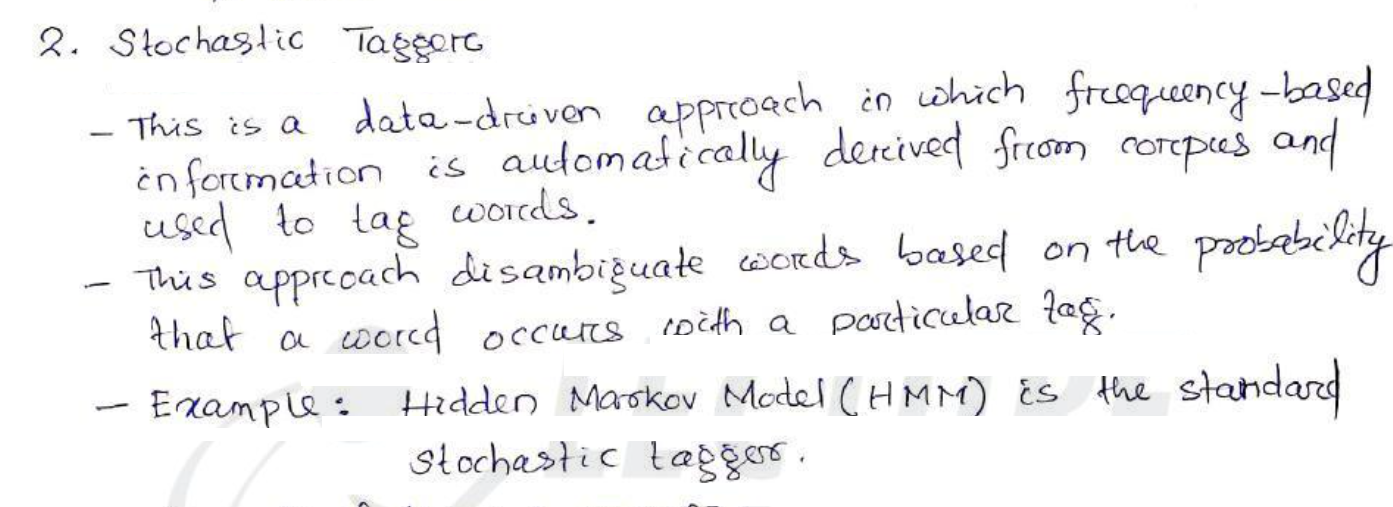 2. Stochastic Taggers
- This is a data-driven approach in which frequency-based
information is automatically derived from corpus and
used to tag words.
- This approach disambiguate words based on the probability
that a word occurs with a particular tag.
- Example: Hidden Markov Model (HMM) is the standard
stochastic tagger.